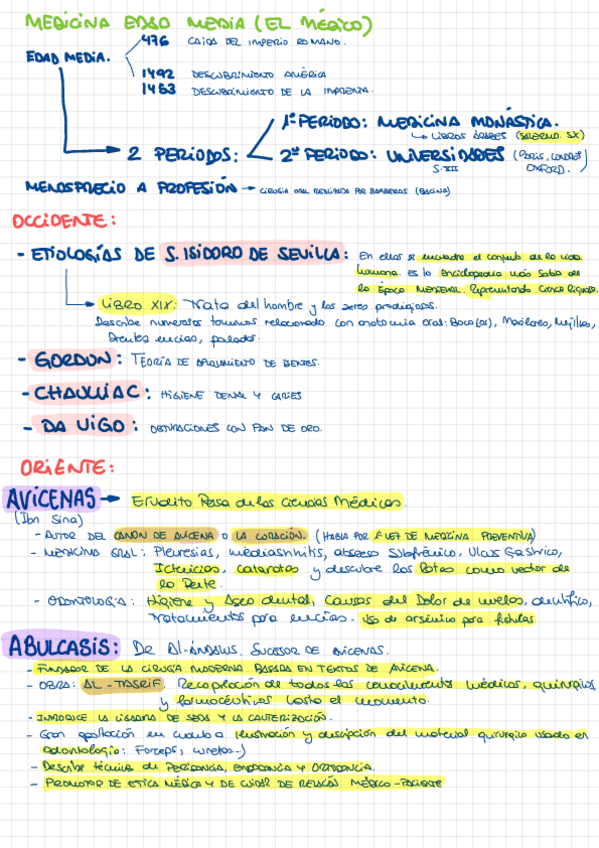 MEDICINA EDAD MEDIA (EL MÉDICO)
476 CAIDA DEL IMPERIO ROMANO.
EDAD MEDIA.
1492 DESCUBRIMIENTO AMÉRICA
1453 DESCUBRIMIENTO DE LA IMPRENTA.
1º PERIODO: MEDICINA MONÁSTICA.
LIBROS ÁRABES (SALERNO. SX)
2 PERIODOS:
2º PERIODO: UNIVERSIDADES (PARIS, LONDRES
S. XII OXFORD.)
MENOSPRECIO A PROFESIÓN → CIRUGIA ORAL REALIZADA POR BARBEROS (BACINA)
OCCIDENTE:
- ETIOLOGÍAS DE S. ISIDORO DE SEVILLA: En ellas se encuadra el conjunto de la vida
humana. es la Enciclopedia más sabia de
la Época Medieval. Representando
LIBRO XIX: Trata del hombre y los seres prodigiosos.
Describe numerosos terminos relacionado con anatomia oral: Boca(os), Maxilares, Mejillas,
Dientes, encias, paladar.
- GORDON: TEORÍA DE DE DIENTES.
- CHAULIAC: HIGIENE DENTAL Y CARIES
- DA VIGO: OBTURACIONES CON PAN DE ORO.
ORIENTE:
AVICENAS → Erudito Persa de las Ciencias Médicas.
(Ibn Sina)
- AUTOR DEL CANON DE AVICENA O LA CURACIÓN. (HABLA POR 1ª VEZ DE MEDICINA PREVENTIVA)
- MEDICINA GRAL: Pleuresias, mediastinitis, absceso subfrénico, Ulcus Gastrico,
Ictericias, cataratas y descubre las Ratas como vector de
la Peste.
- ODONTOLOGIA: Higiene y Aseo dental, Causas del Dolor de muelas, dentífrico,
tratamientos para encías. Uso de arsénico para fistulas
ABULCASIS: DE Al-ÁNDALUS. SUCESOR DE AVICENAS.
- FUNDADOR DE LA CIRUGÍA MODERNA BASADA EN TEXTOS DE AVICENA.
- OBRA: AL-TASRIF. Recopilación de todos los conocimientos médicos, quirurgicos
y farmacéuticos hasta el momento.
- INTRODUCE LA LIGADURA DE SEDA Y LA CAUTERIZACIÓN.
- Gran aportación en cuanto a ilustración y descripción del material quirurgico usado en
odontología: Forceps, )
- Describe técnica de PERIODONCIA, ENDODONCIA Y ORTODONCIA.
- PROMOTOR DE ETICA MÉDICA Y DE CUIDAR DE RELACIÓN MÉDICO-PACIENTE